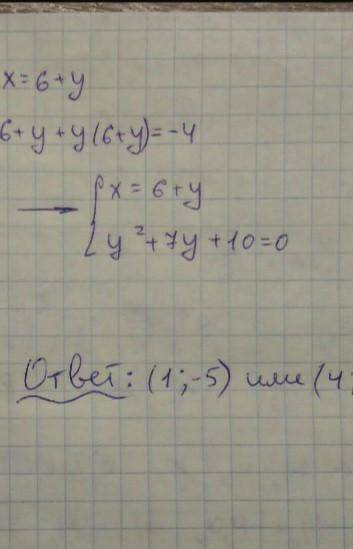 x = 6 + y
6 + y + y (6 + y) = -4
→ { x = 6 + y
y² + 7y + 10 = 0
Ответ: (1; -5) или (4;